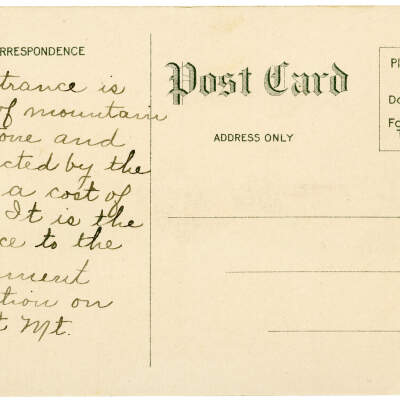 RRESPONDENCE
trance is
of mountain
one and
cted by the
a cost of
It is the
ce to the
ment
tion on
t Mt.
Post Card
ADDRESS ONLY
Pl
Do
Fo